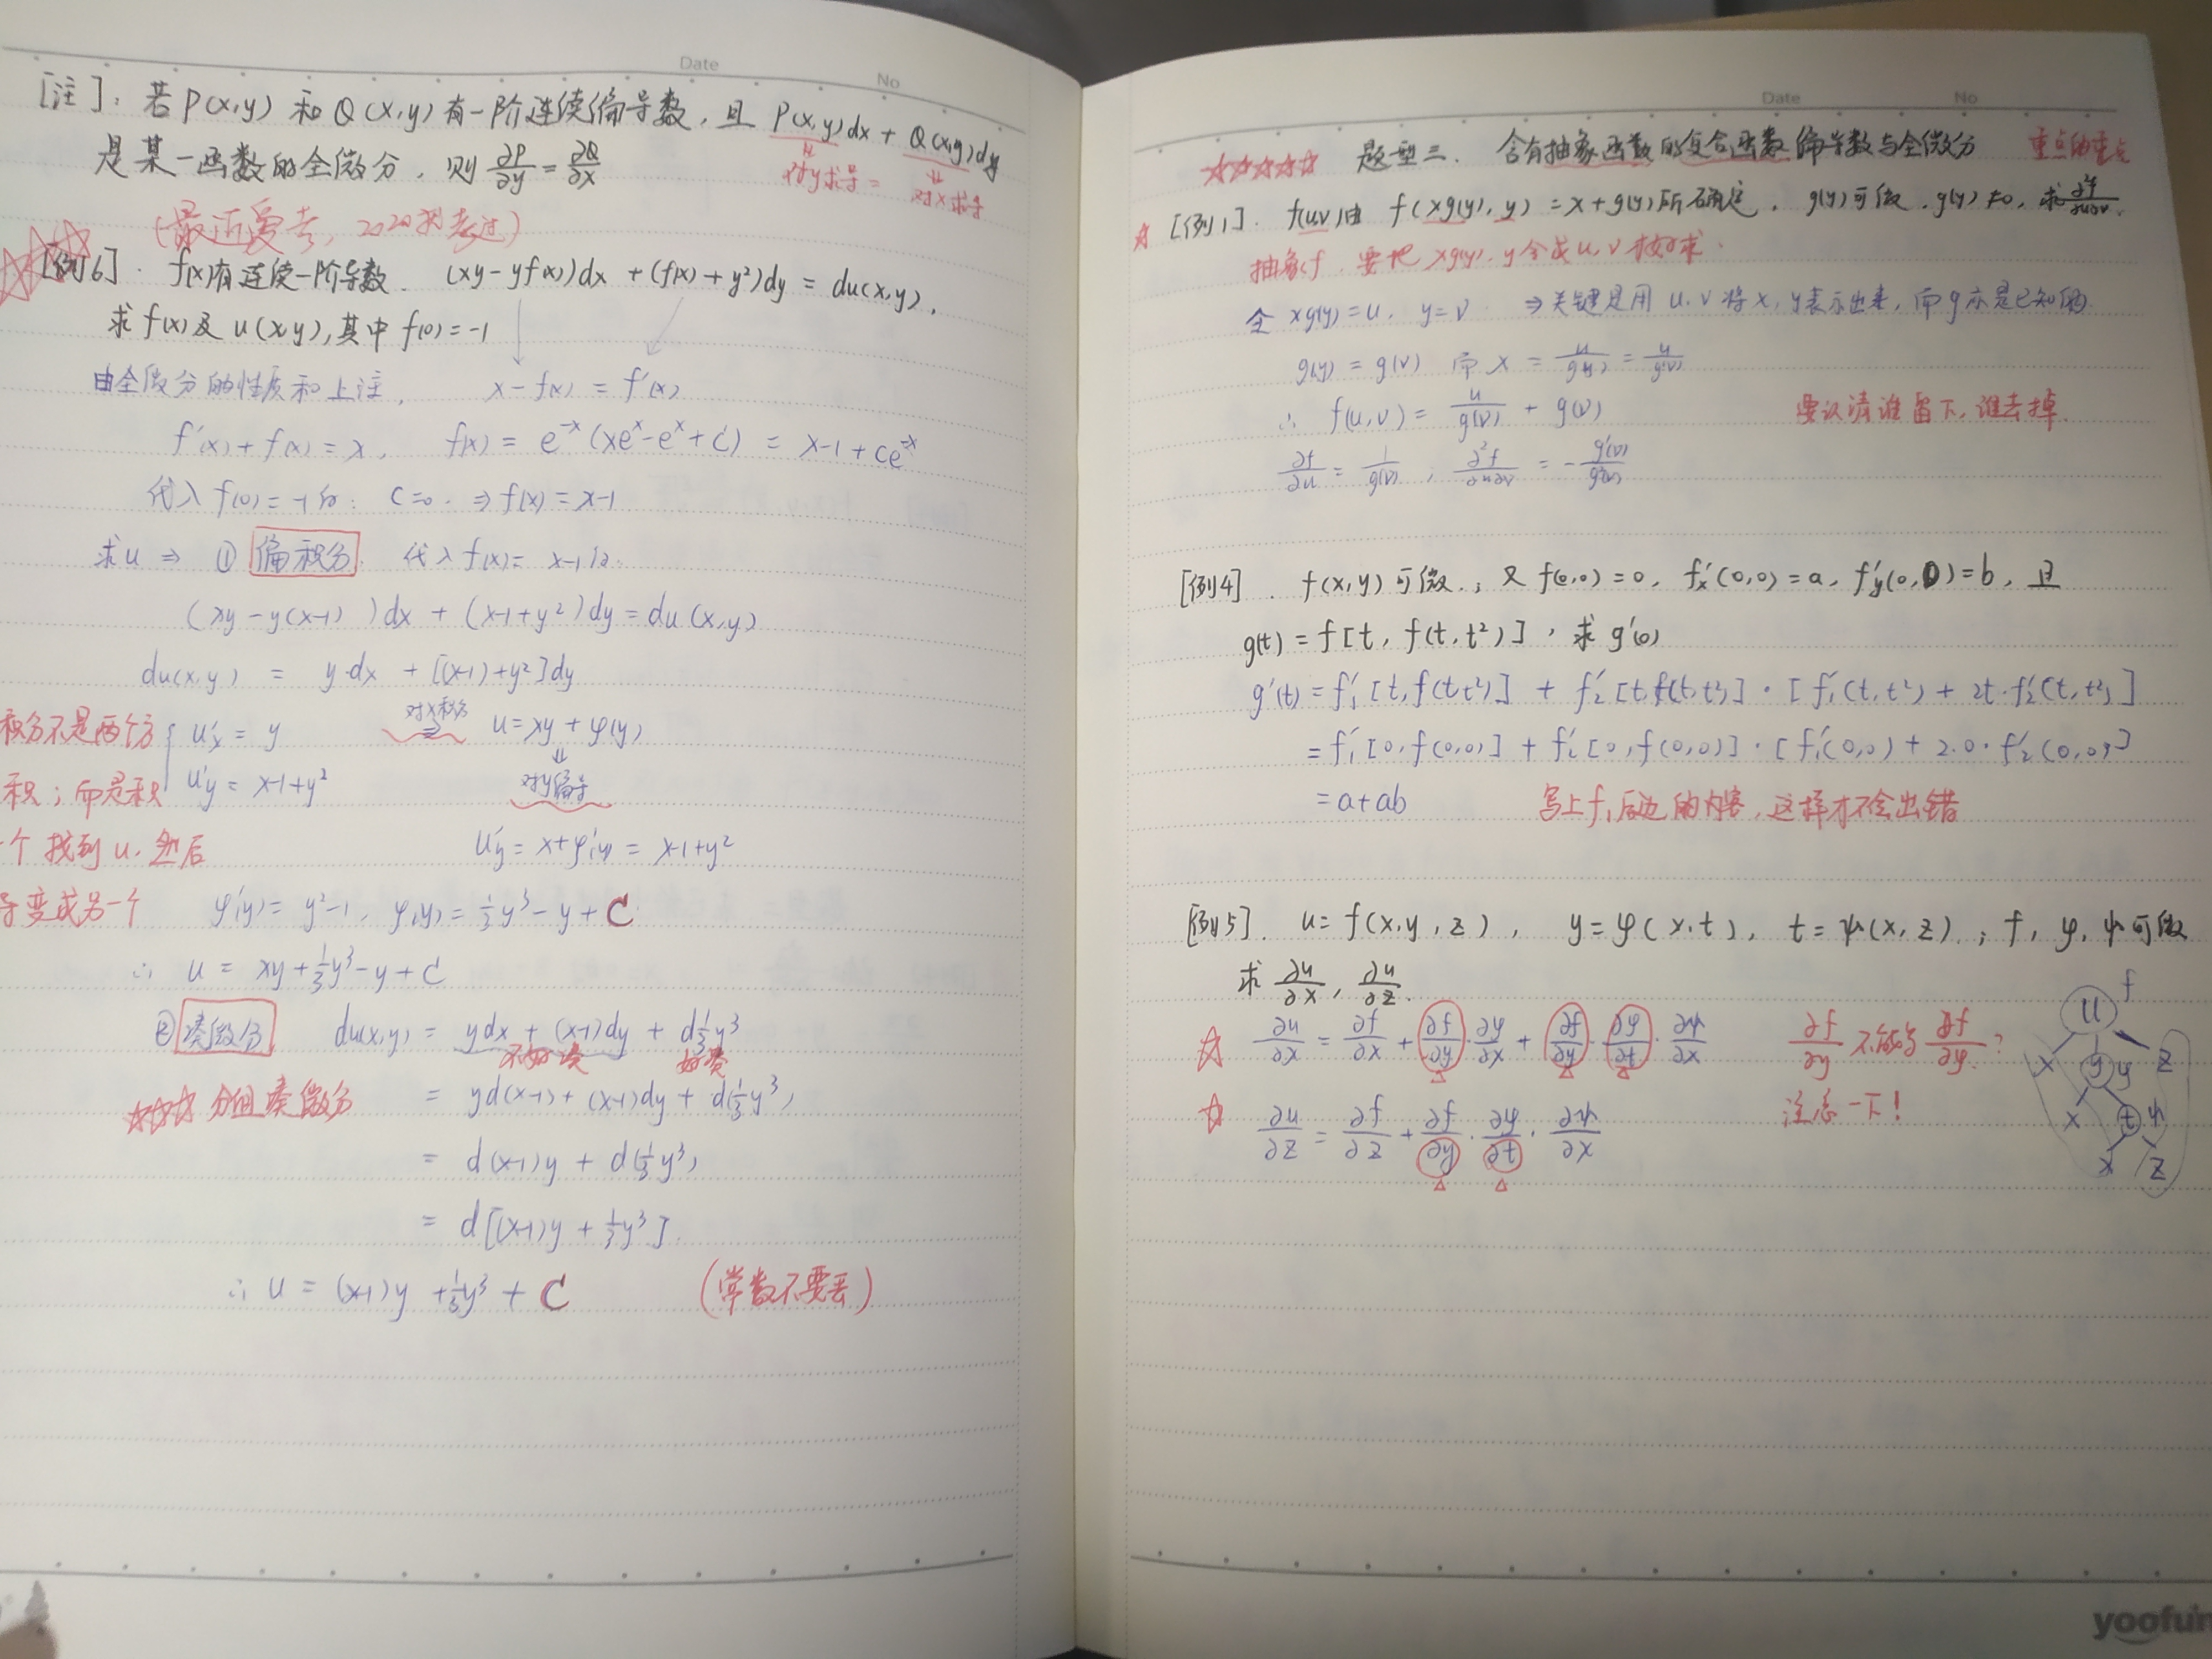 Date No
[注]: 若P(x,y) 和 Q(x,y)有一阶连续偏导数, 且 P(x,y)dx + Q(x,y)dy
是某一函数的全微分, 则 ∂P/∂y = ∂Q/∂x
对y求导 = 对x求导
(最近爱考, 2020刚考过)
[例6]. f(x)有连续一阶导数. (xy-yf(x))dx + (f(x)+y²)dy = du(x,y),
求f(x)及u(x,y),其中f(0)=-1
由全微分的性质和上注, x-f(x) = f'(x)
f'(x)+f(x)=x, f(x) = e^-x (xe^x-e^x+C) = x-1+Ce^-x
代入f(0)=-1得: C=0. ⇒ f(x)=x-1
求u ⇒ ① 偏积分. 代入f(x)= x-1得.
(xy-y(x-1))dx + (x-1+y²)dy = du(x,y)
du(x,y) = y·dx + [(x-1)+y²]dy
积分不是两个分 { u'x = y 对x积分 ⇒ u=xy+φ(y)
积; 而是积 u'y = x-1+y² 对y偏导
个找到u. 然后 u'y = x+φ'(y) = x-1+y²
导变成另一个 φ'(y)= y²-1, φ(y)= 1/3y³-y+C
∴ u = xy+1/3y³-y+C
② 凑微分 du(x,y) = ydx + (x-1)dy + d1/3y³
不好凑 好凑
☆☆☆ 分组凑微分 = yd(x-1)+(x-1)dy+d(1/3y³)
= d(x-1)y + d(1/3y³)
= d[(x-1)y + 1/3y³].
∴ u = (x-1)y + 1/3y³ + C (常数不要丢)
Date No
☆☆☆☆☆ 题型三. 含有抽象函数的复合函数偏导数与全微分 重点的重点
☆ [例1]. f(u,v)由 f(xg(y), y) = x+g(y)所确定, g(y)可微, g(y)≠0, 求∂²f/∂u∂v.
抽象f, 要把 xg(y), y 令成u, v才好求.
令 xg(y)=u, y=v ⇒关键是用u,v将x,y表示出来, 而g亦是已知的.
g(y) = g(v) 而 x = u/g(y) = u/g(v)
∴ f(u,v) = u/g(v) + g(v) 要认清谁留下,谁去掉.
∂f/∂u = 1/g(v) ; ∂²f/∂u∂v = -g'(v)/g²(v)
[例4]. f(x,y)可微.; 又f(0,0)=0, f'x(0,0)=a, f'y(0,0)=b, 且
g(t) = f[t, f(t,t²)], 求g'(0)
g'(t) = f'1[t,f(t,t²)] + f'2[t,f(t,t²)]·[f'1(t,t²) + 2t·f'2(t,t²)]
= f'1[0,f(0,0)] + f'2[0,f(0,0)]·[f'1(0,0) + 2·0·f'2(0,0)]
= a+ab 写上f,后边的内容,这样才不会出错
[例5]. u=f(x,y,z), y=φ(x,t), t=ψ(x,z).; f, φ, ψ可微
求 ∂u/∂x, ∂u/∂z.
☆ ∂u/∂x = ∂f/∂x + ∂f/∂y·∂φ/∂x + ∂f/∂y·∂φ/∂t·∂ψ/∂x ∂f/∂y 不能写 ∂f/∂φ?
☆ ∂u/∂z = ∂f/∂z + ∂f/∂y·∂φ/∂t·∂ψ/∂x 注意一下!
f
u
x y φ z
x t ψ
x z
yoofun